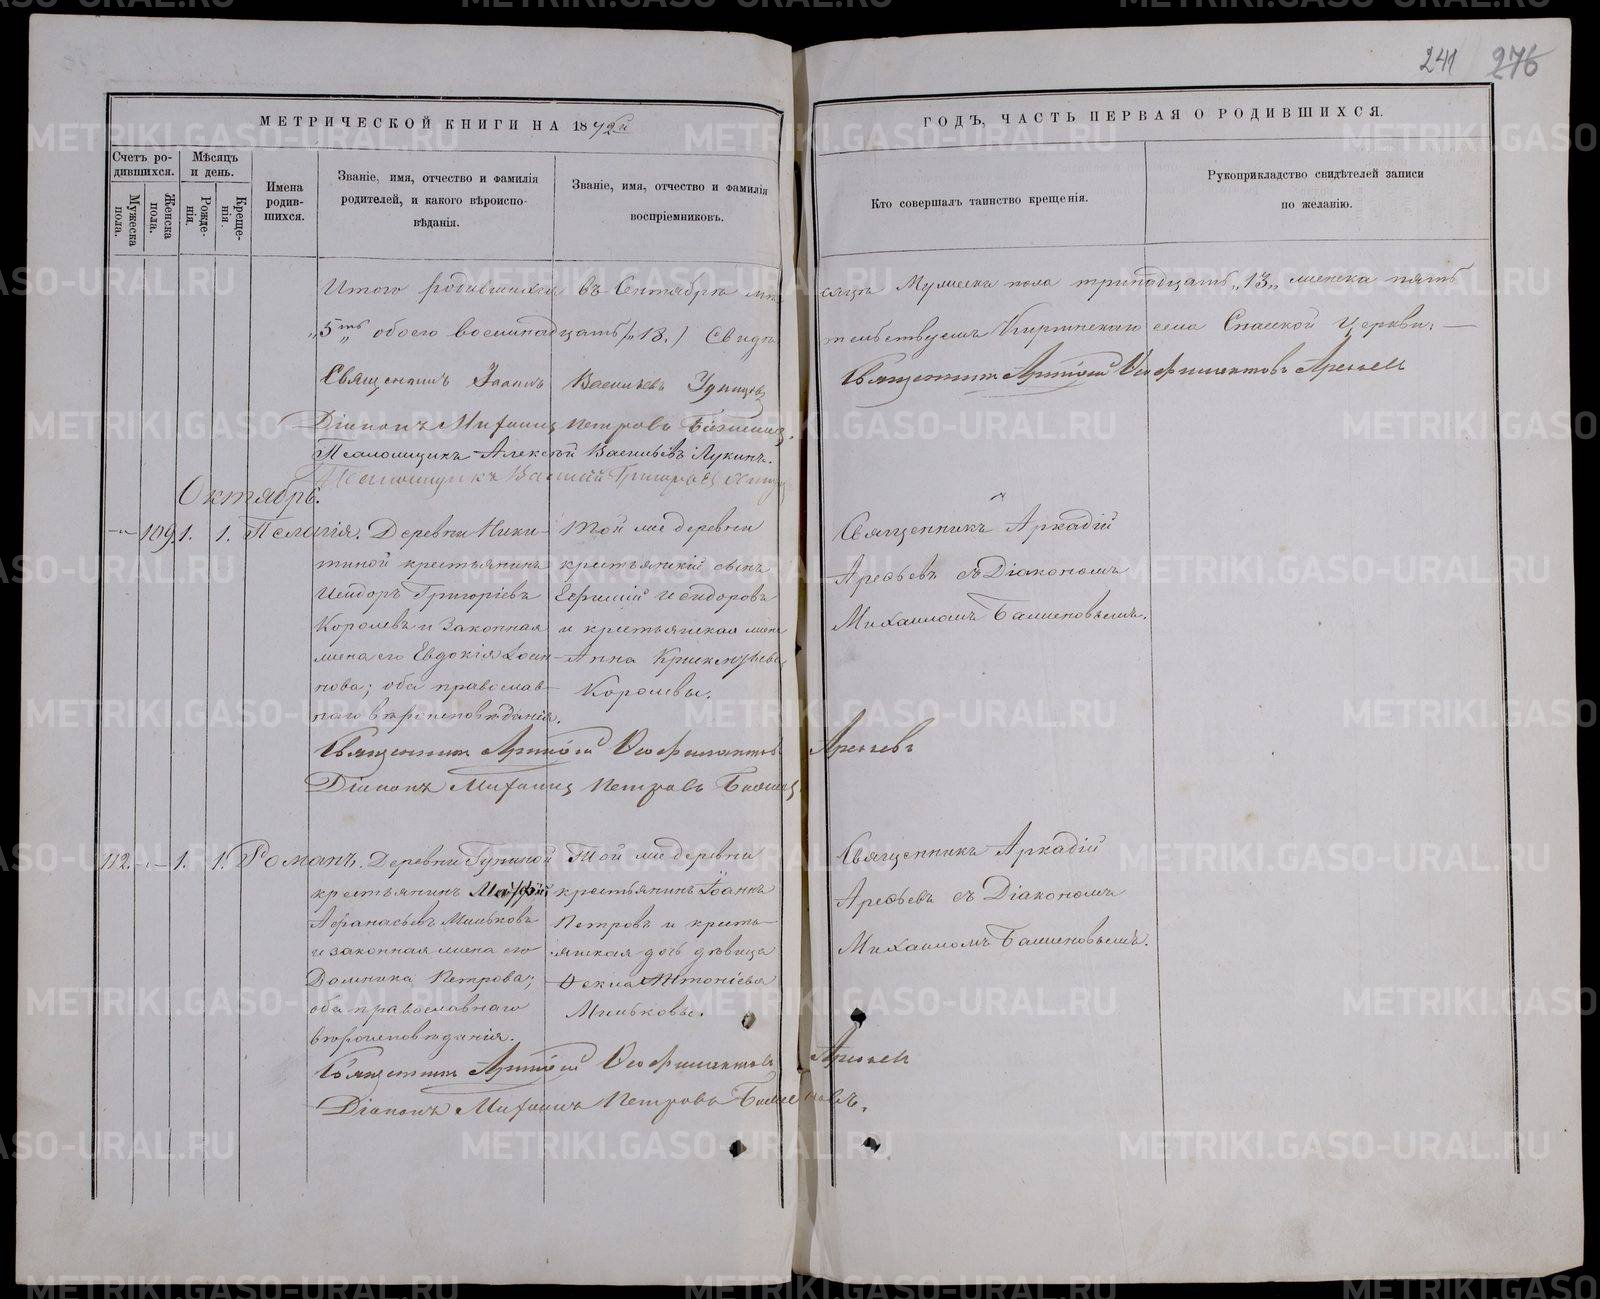 241 276
МЕТРИЧЕСКОЙ КНИГИ НА 1872й
ГОДЪ, ЧАСТЬ ПЕРВАЯ О РОДИВШИХСЯ.
Счетъ родившихся.
Мужеска пола.
Женска пола.
Мѣсяцъ и день.
Рожденія.
Крещенія.
Имена родившихся.
Званіе, имя, отчество и фамилія
родителей, и какого вѣроиспо-
вѣданія.
Званіе, имя, отчество и фамилія
воспріемниковъ.
Кто совершалъ таинство крещенія.
Рукоприкладство свидѣтелей записи
по желанію.
Итого родившихся въ Сентябрѣ мѣсяцѣ Мужеска пола тринадцать „13„ женска пять
„5ть„ обоего восемнадцать /„18./ Свидѣтельствуемъ Киргинскаго села Спасской Церкви:
Священникъ Іоаннъ Васильевъ Удинцовъ
Священникъ Аркадій Феофилактовъ Арефьевъ
Діаконъ Михаилъ Петровъ
Псаломщикъ Алексѣй Васильевъ Лукинъ.
Псаломщикъ Василій Григорьевъ
Октябрь.
109 1. 1. Пелагія.
Деревни Ники-
тиной крестьянинъ
Исидоръ Григорьевъ
Королевъ и законная
жена его Евдокія Іоан-
нова; оба православ-
наго вѣроисповѣданія.
Той же деревни
крестьянскій сынъ
Ефимій Исидоровъ
и крестьянская жена
Анна
Королевы.
Священникъ Аркадій
Арефьевъ съ Діакономъ
Михаиломъ
Священникъ Аркадій Феофилактовъ Арефьевъ
Діаконъ Михаилъ Петровъ
112. 1. 1. Романъ.
Деревни
крестьянинъ
Афанасьевъ Мильковъ
и законная жена его
Домника Петрова;
оба православнаго
вѣроисповѣданія.
Той же деревни
крестьянинъ Іоаннъ
Петровъ и кресть-
янская дочь дѣвица
Фекла Антоніева
Мильковы.
Священникъ Аркадій
Арефьевъ съ Діакономъ
Михаиломъ
Священникъ Аркадій Феофилактовъ Арефьевъ
Діаконъ Михаилъ Петровъ
METRIKI.GASO-URAL.RU